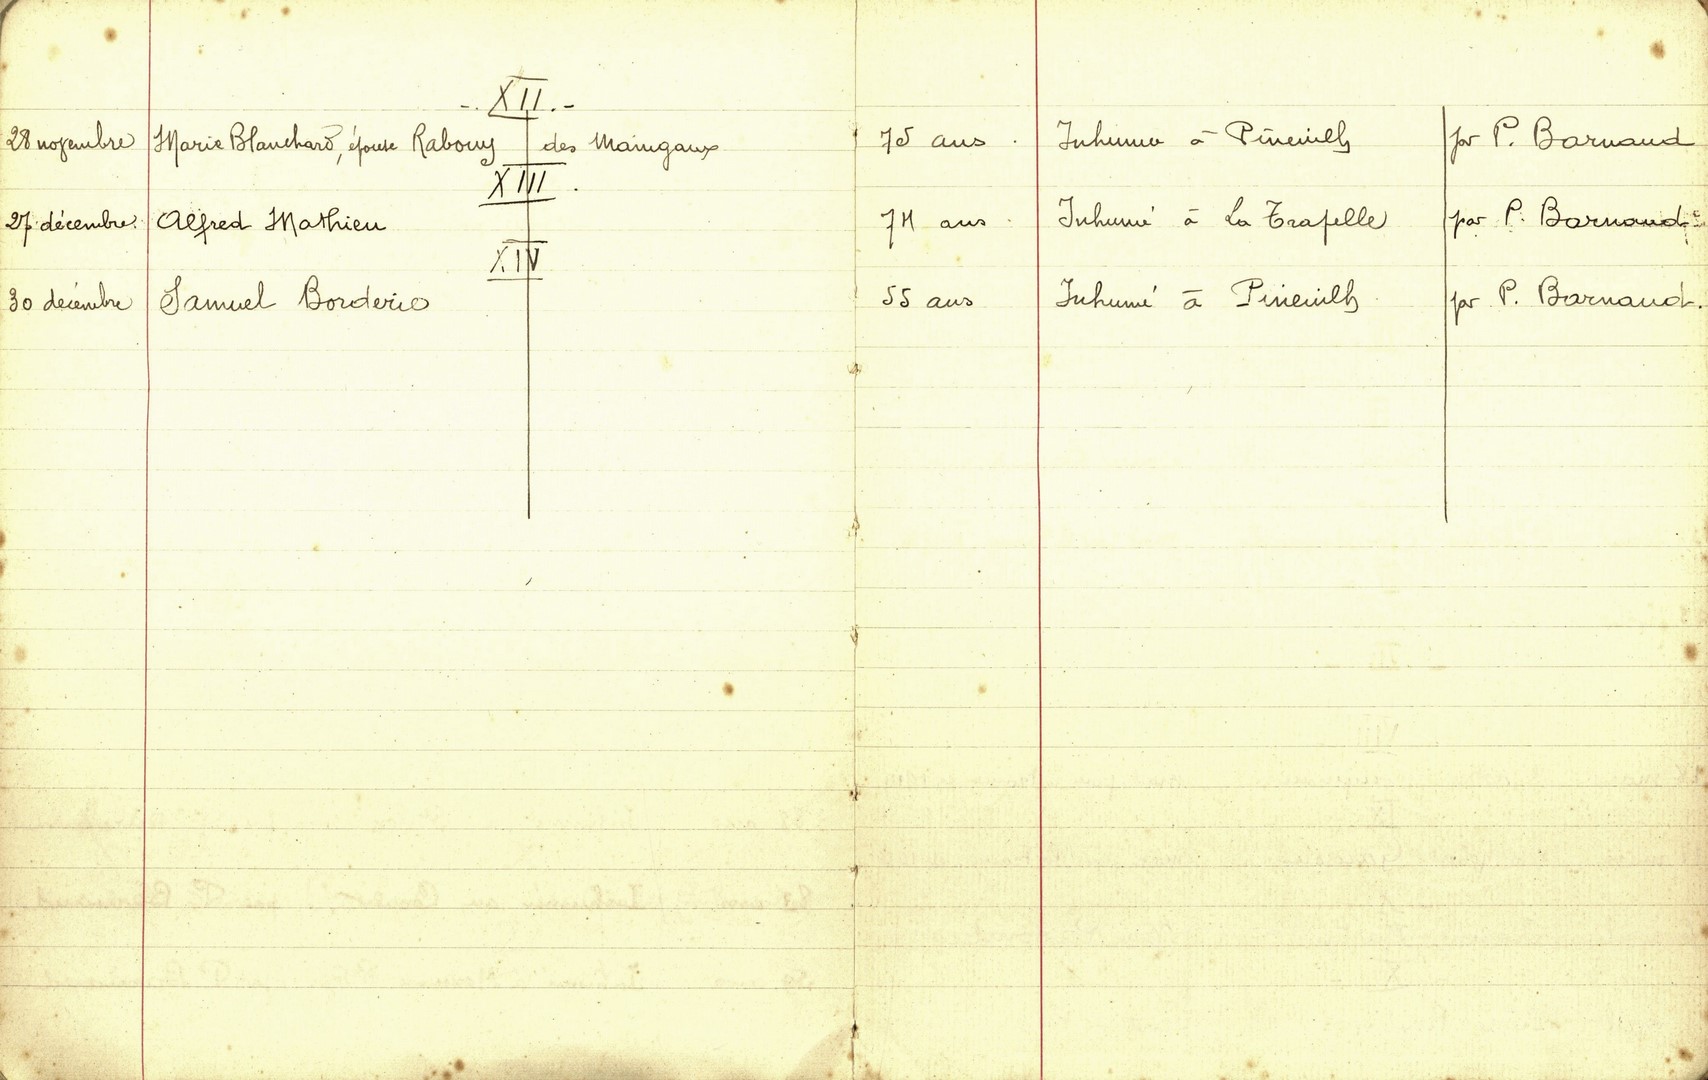 -. XII. -
28 novembre Marie Blanchard, épouse Rabouy des Mainganx 75 ans. Inhumée à Pineuilh par P. Barnaud
XIII.
27 décembre. Alfred Mathieu 74 ans. Inhumé à La Trapelle par P. Barnaud
XIV
30 décembre Samuel Borderie 55 ans Inhumé à Pineuilh par P. Barnaud.